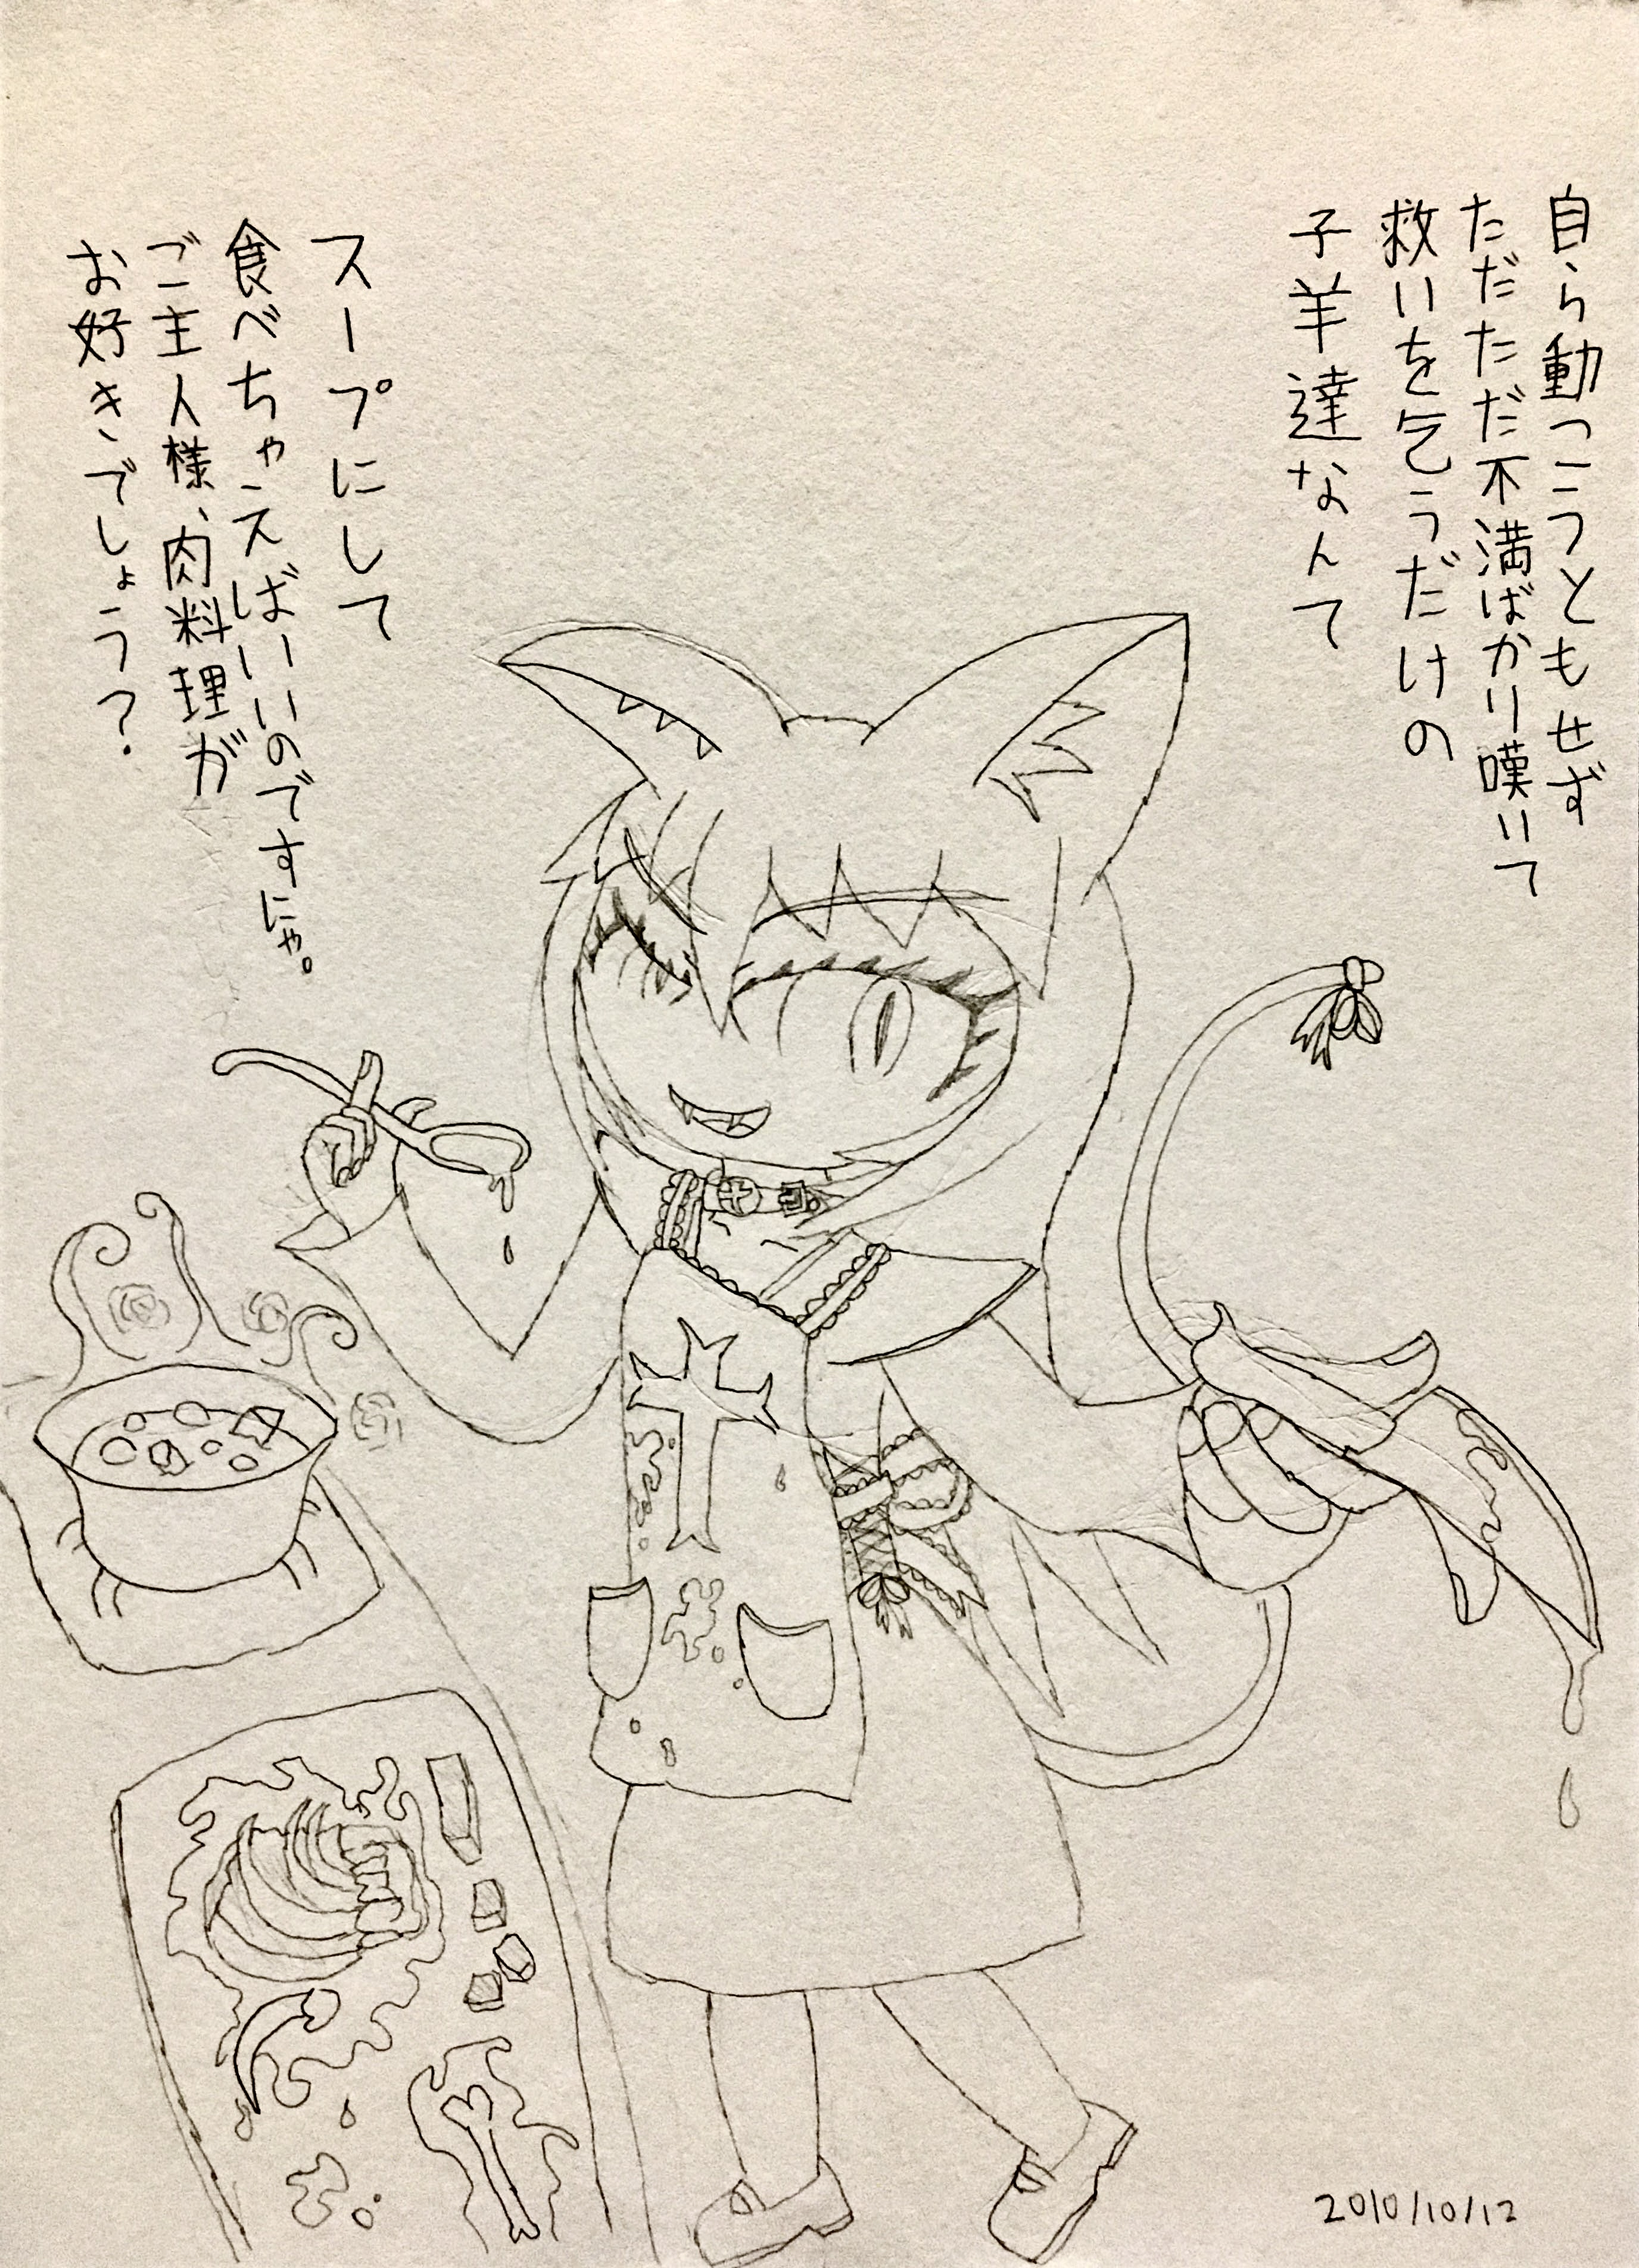 自ら動こうともせず
ただただ不満ばかり嘆いて
救いを乞うだけの
子羊達なんて
スープにして
食べちゃえばいいのですにゃ。
ご主人様、肉料理が
お好きでしょう？
2010/10/12